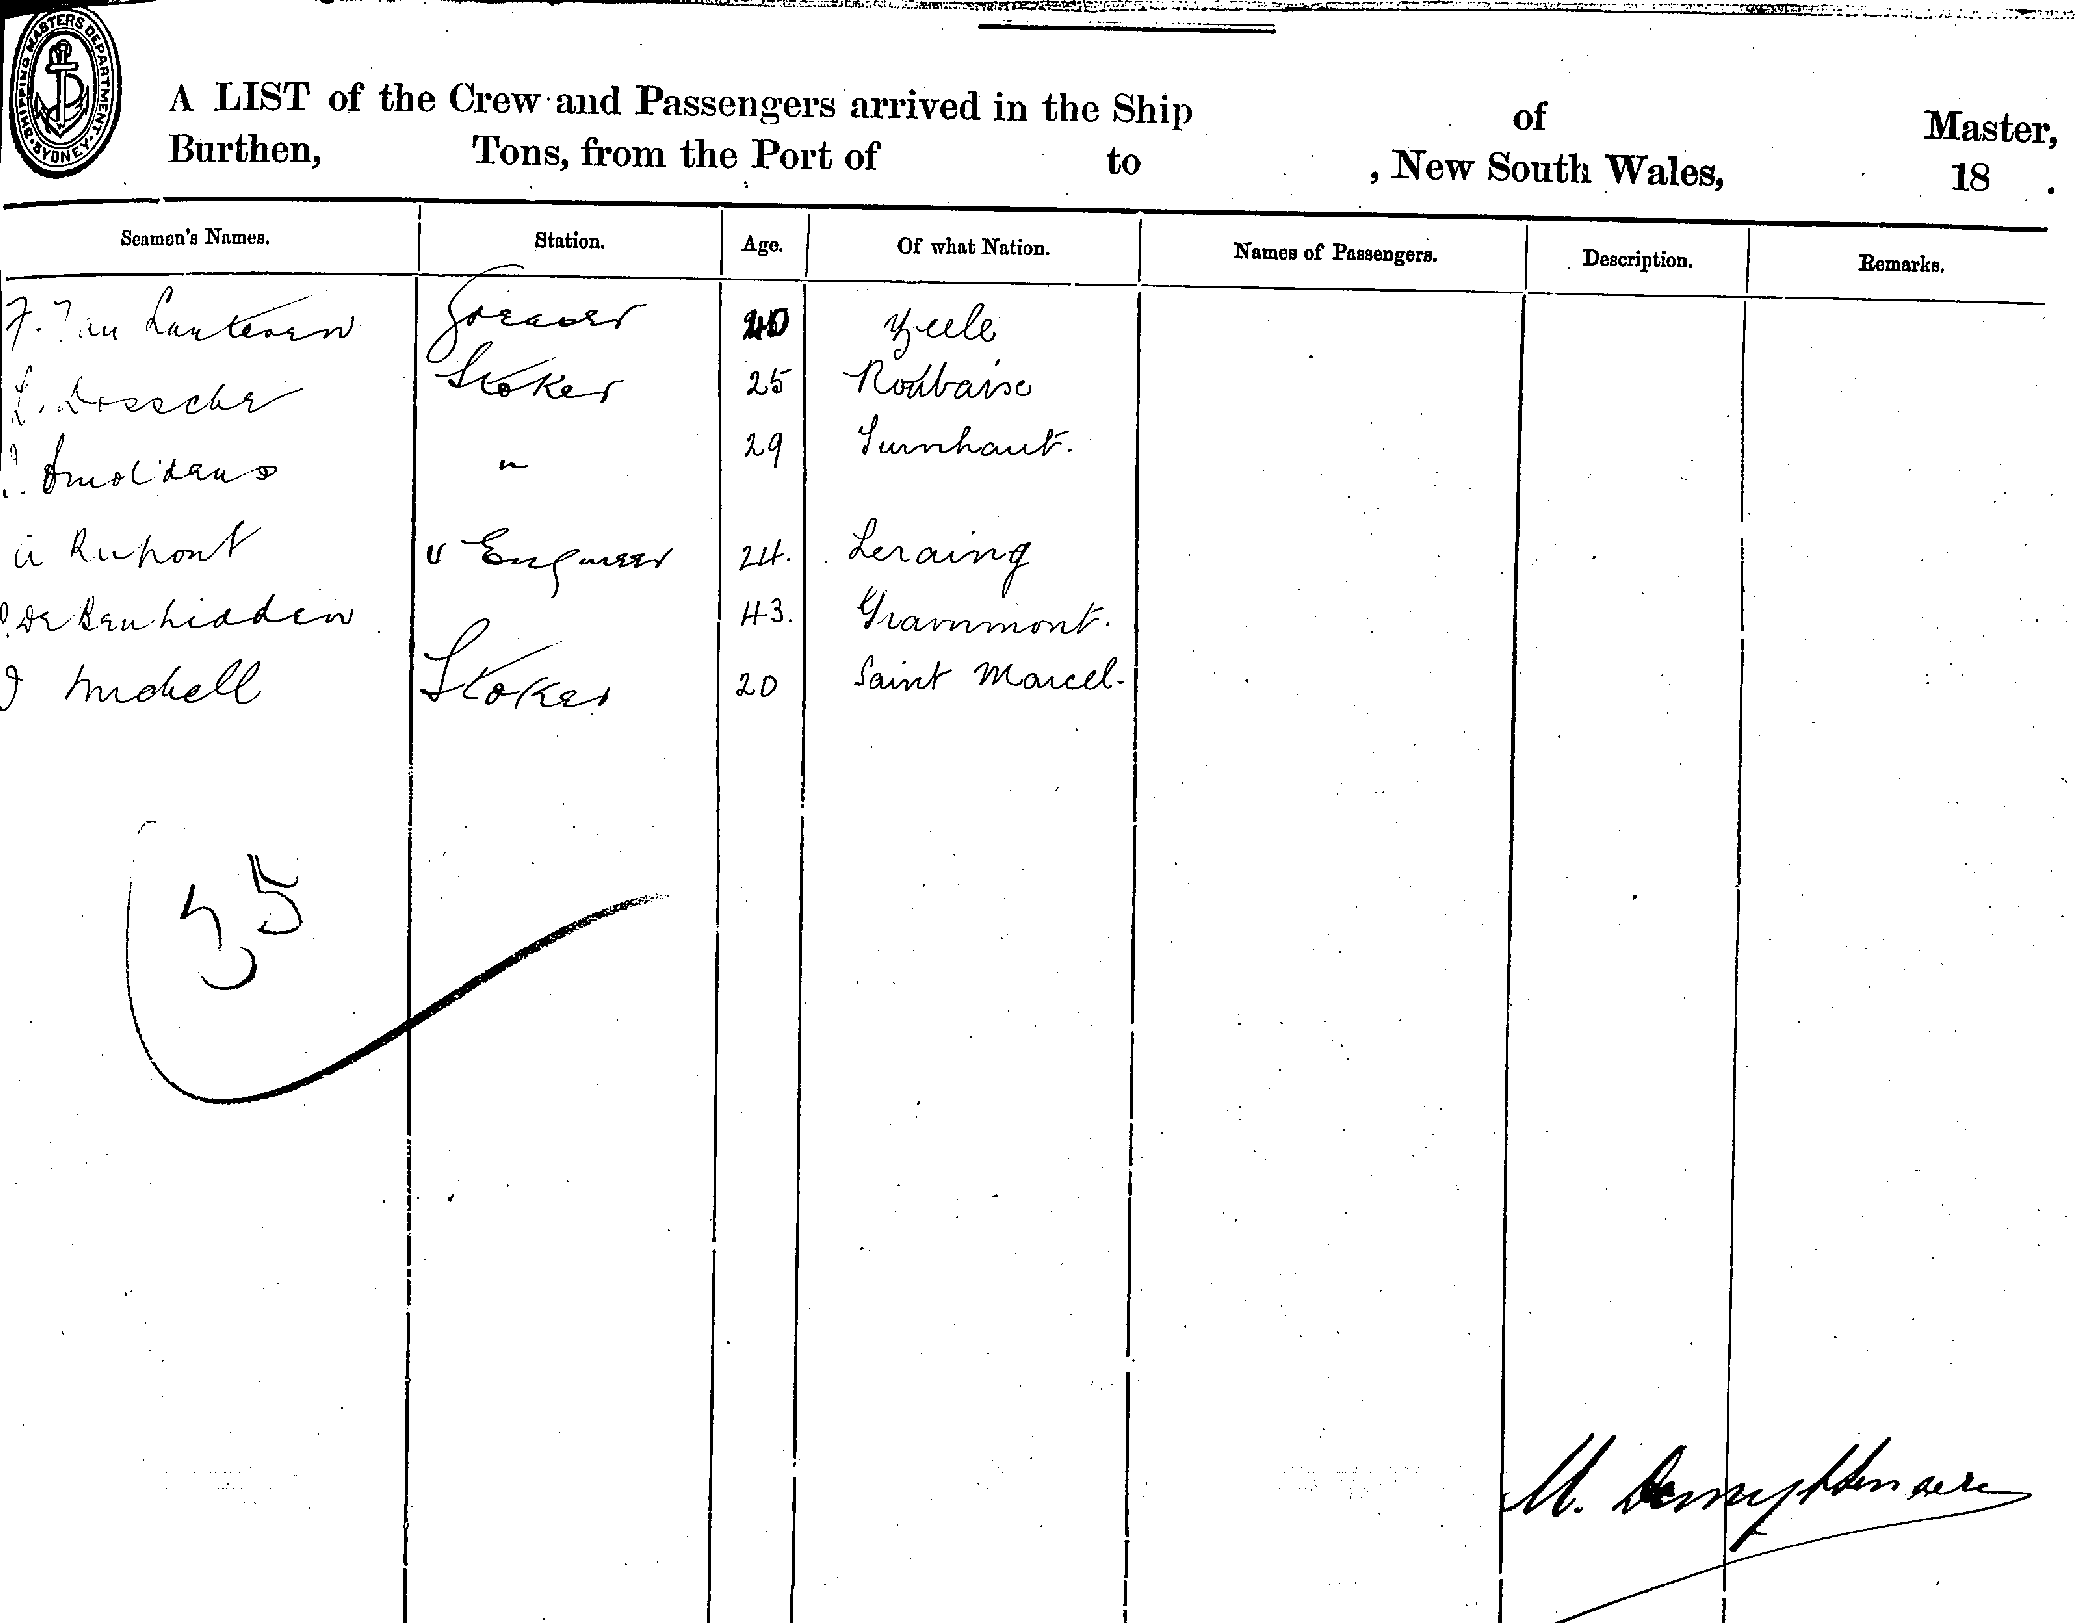 SHIPPING MASTERS DEPARTMENT SYDNEY
A LIST of the Crew and Passengers arrived in the Ship of Master,
Burthen, Tons, from the Port of to , New South Wales, 18 .
Seamen's Names. Station. Age. Of what Nation. Names of Passengers. Description. Remarks.
F. Van Lanteren Greaser 40 Zeele
L. Dosscher Stoker 25 Roubaise
" 29 Turnhaut.
A Dupont " Engineer 24. Seraing
De Benhidden 43. Grammont.
J Michell Stoker 20 Saint Marcel.
35
M.